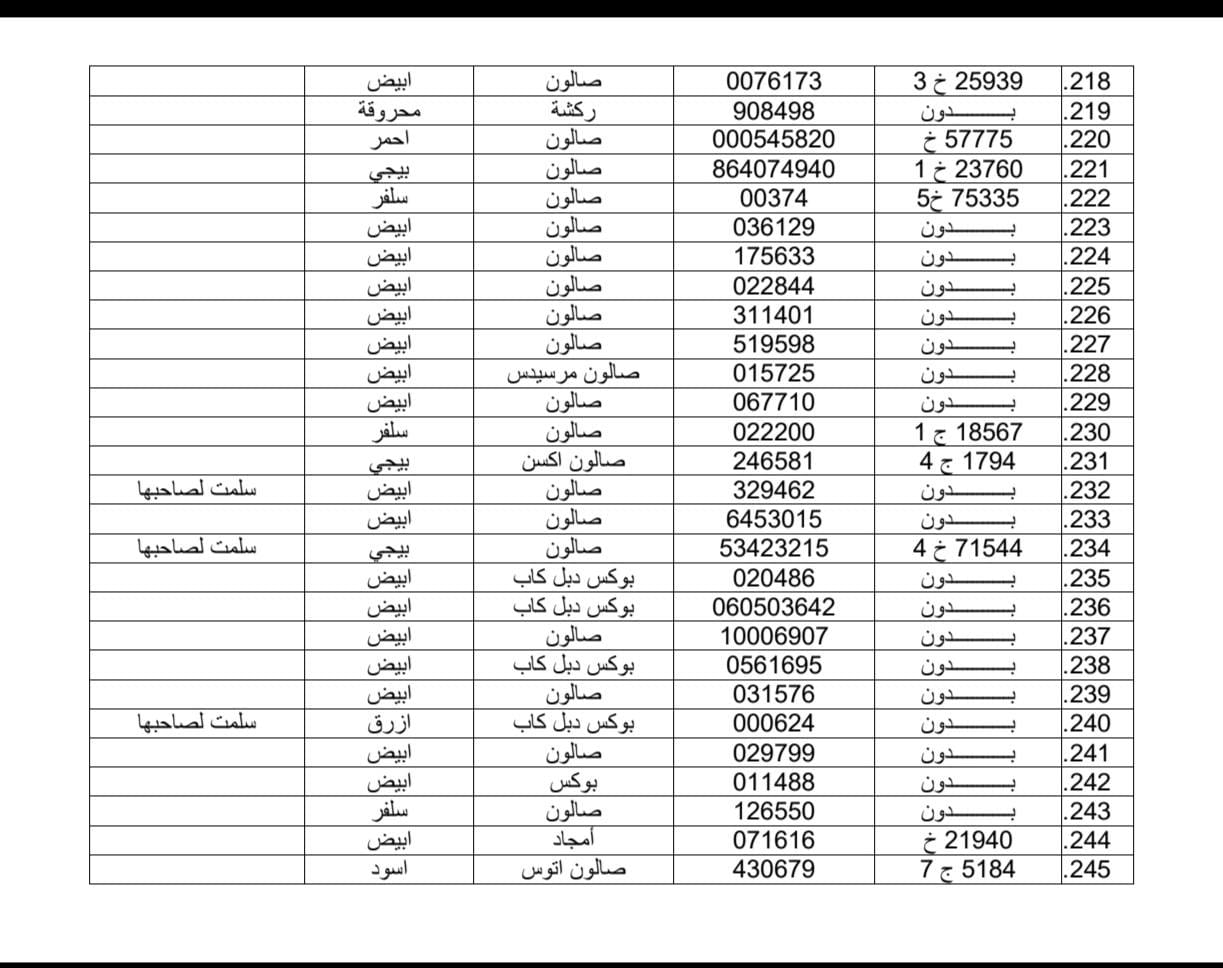 218. 25939 خ 3 0076173 صالون ابيض
219. بـــــــدون 908498 ركشة محروقة
220. 57775 خ 000545820 صالون احمر
221. 23760 خ 1 864074940 صالون بيجي
222. 75335 خ5 00374 صالون سلفر
223. بـــــــدون 036129 صالون ابيض
224. بـــــــدون 175633 صالون ابيض
225. بـــــــدون 022844 صالون ابيض
226. بـــــــدون 311401 صالون ابيض
227. بـــــــدون 519598 صالون ابيض
228. بـــــــدون 015725 صالون مرسيدس ابيض
229. بـــــــدون 067710 صالون ابيض
230. 18567 ج 1 022200 صالون سلفر
231. 1794 ج 4 246581 صالون اكسن بيجي
232. بـــــــدون 329462 صالون ابيض سلمت لصاحبها
233. بـــــــدون 6453015 صالون ابيض
234. 71544 خ 4 53423215 صالون بيجي سلمت لصاحبها
235. بـــــــدون 020486 بوكس دبل كاب ابيض
236. بـــــــدون 060503642 بوكس دبل كاب ابيض
237. بـــــــدون 10006907 صالون ابيض
238. بـــــــدون 0561695 بوكس دبل كاب ابيض
239. بـــــــدون 031576 صالون ابيض
240. بـــــــدون 000624 بوكس دبل كاب ازرق سلمت لصاحبها
241. بـــــــدون 029799 صالون ابيض
242. بـــــــدون 011488 بوكس ابيض
243. بـــــــدون 126550 صالون سلفر
244. 21940 خ 071616 أمجاد ابيض
245. 5184 ج 7 430679 صالون اتوس اسود